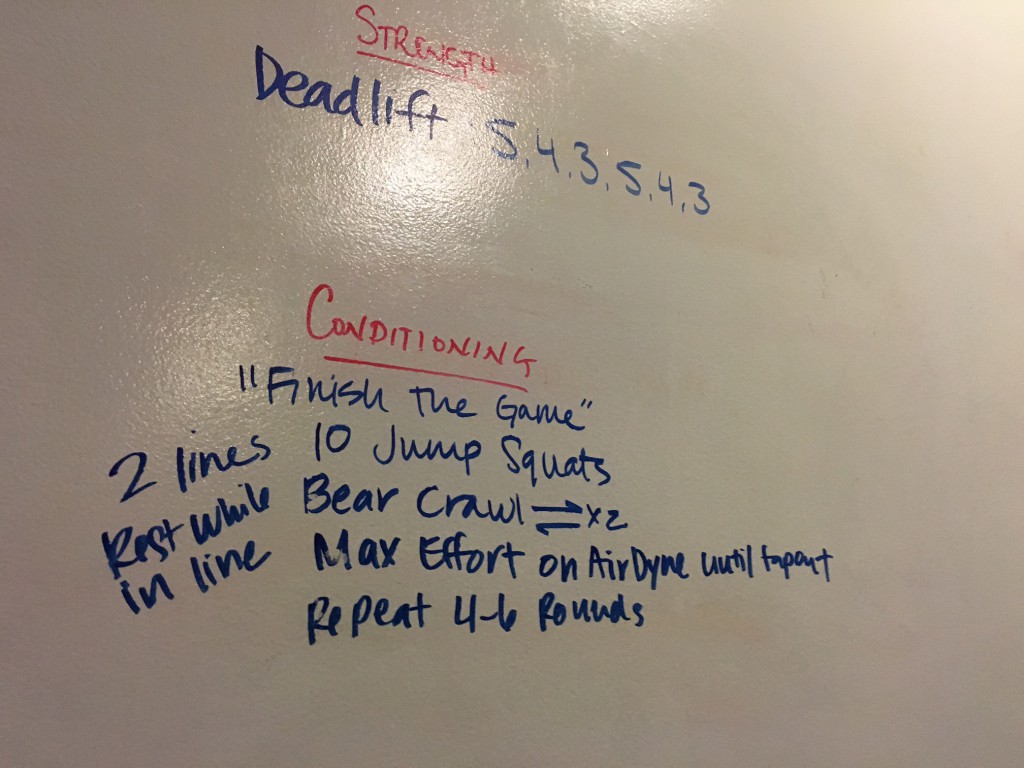 STRENGTH
Deadlift 5,4,3,5,4,3
CONDITIONING
"Finish The Game"
2 lines
Rest while
in line
10 Jump Squats
Bear Crawl ⇌ x2
Max Effort on AirDyne until tapout
Repeat 4-6 Rounds